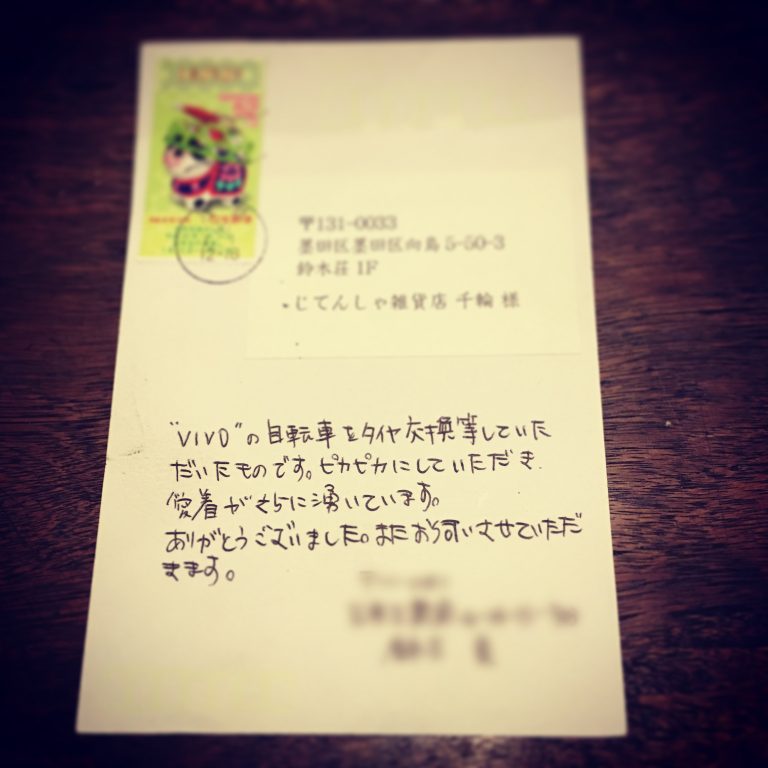 12-18
〒131-0033
墨田区墨田区向島5-50-3
鈴木荘 1F
じてんしゃ雑貨店 千輪 様
"VIVO"の自転車をタイヤ交換等していた
だいたものです。ピカピカにしていただき
愛着がさらに湧いています。
ありがとうございました。またお伺いさせていただ
きます。